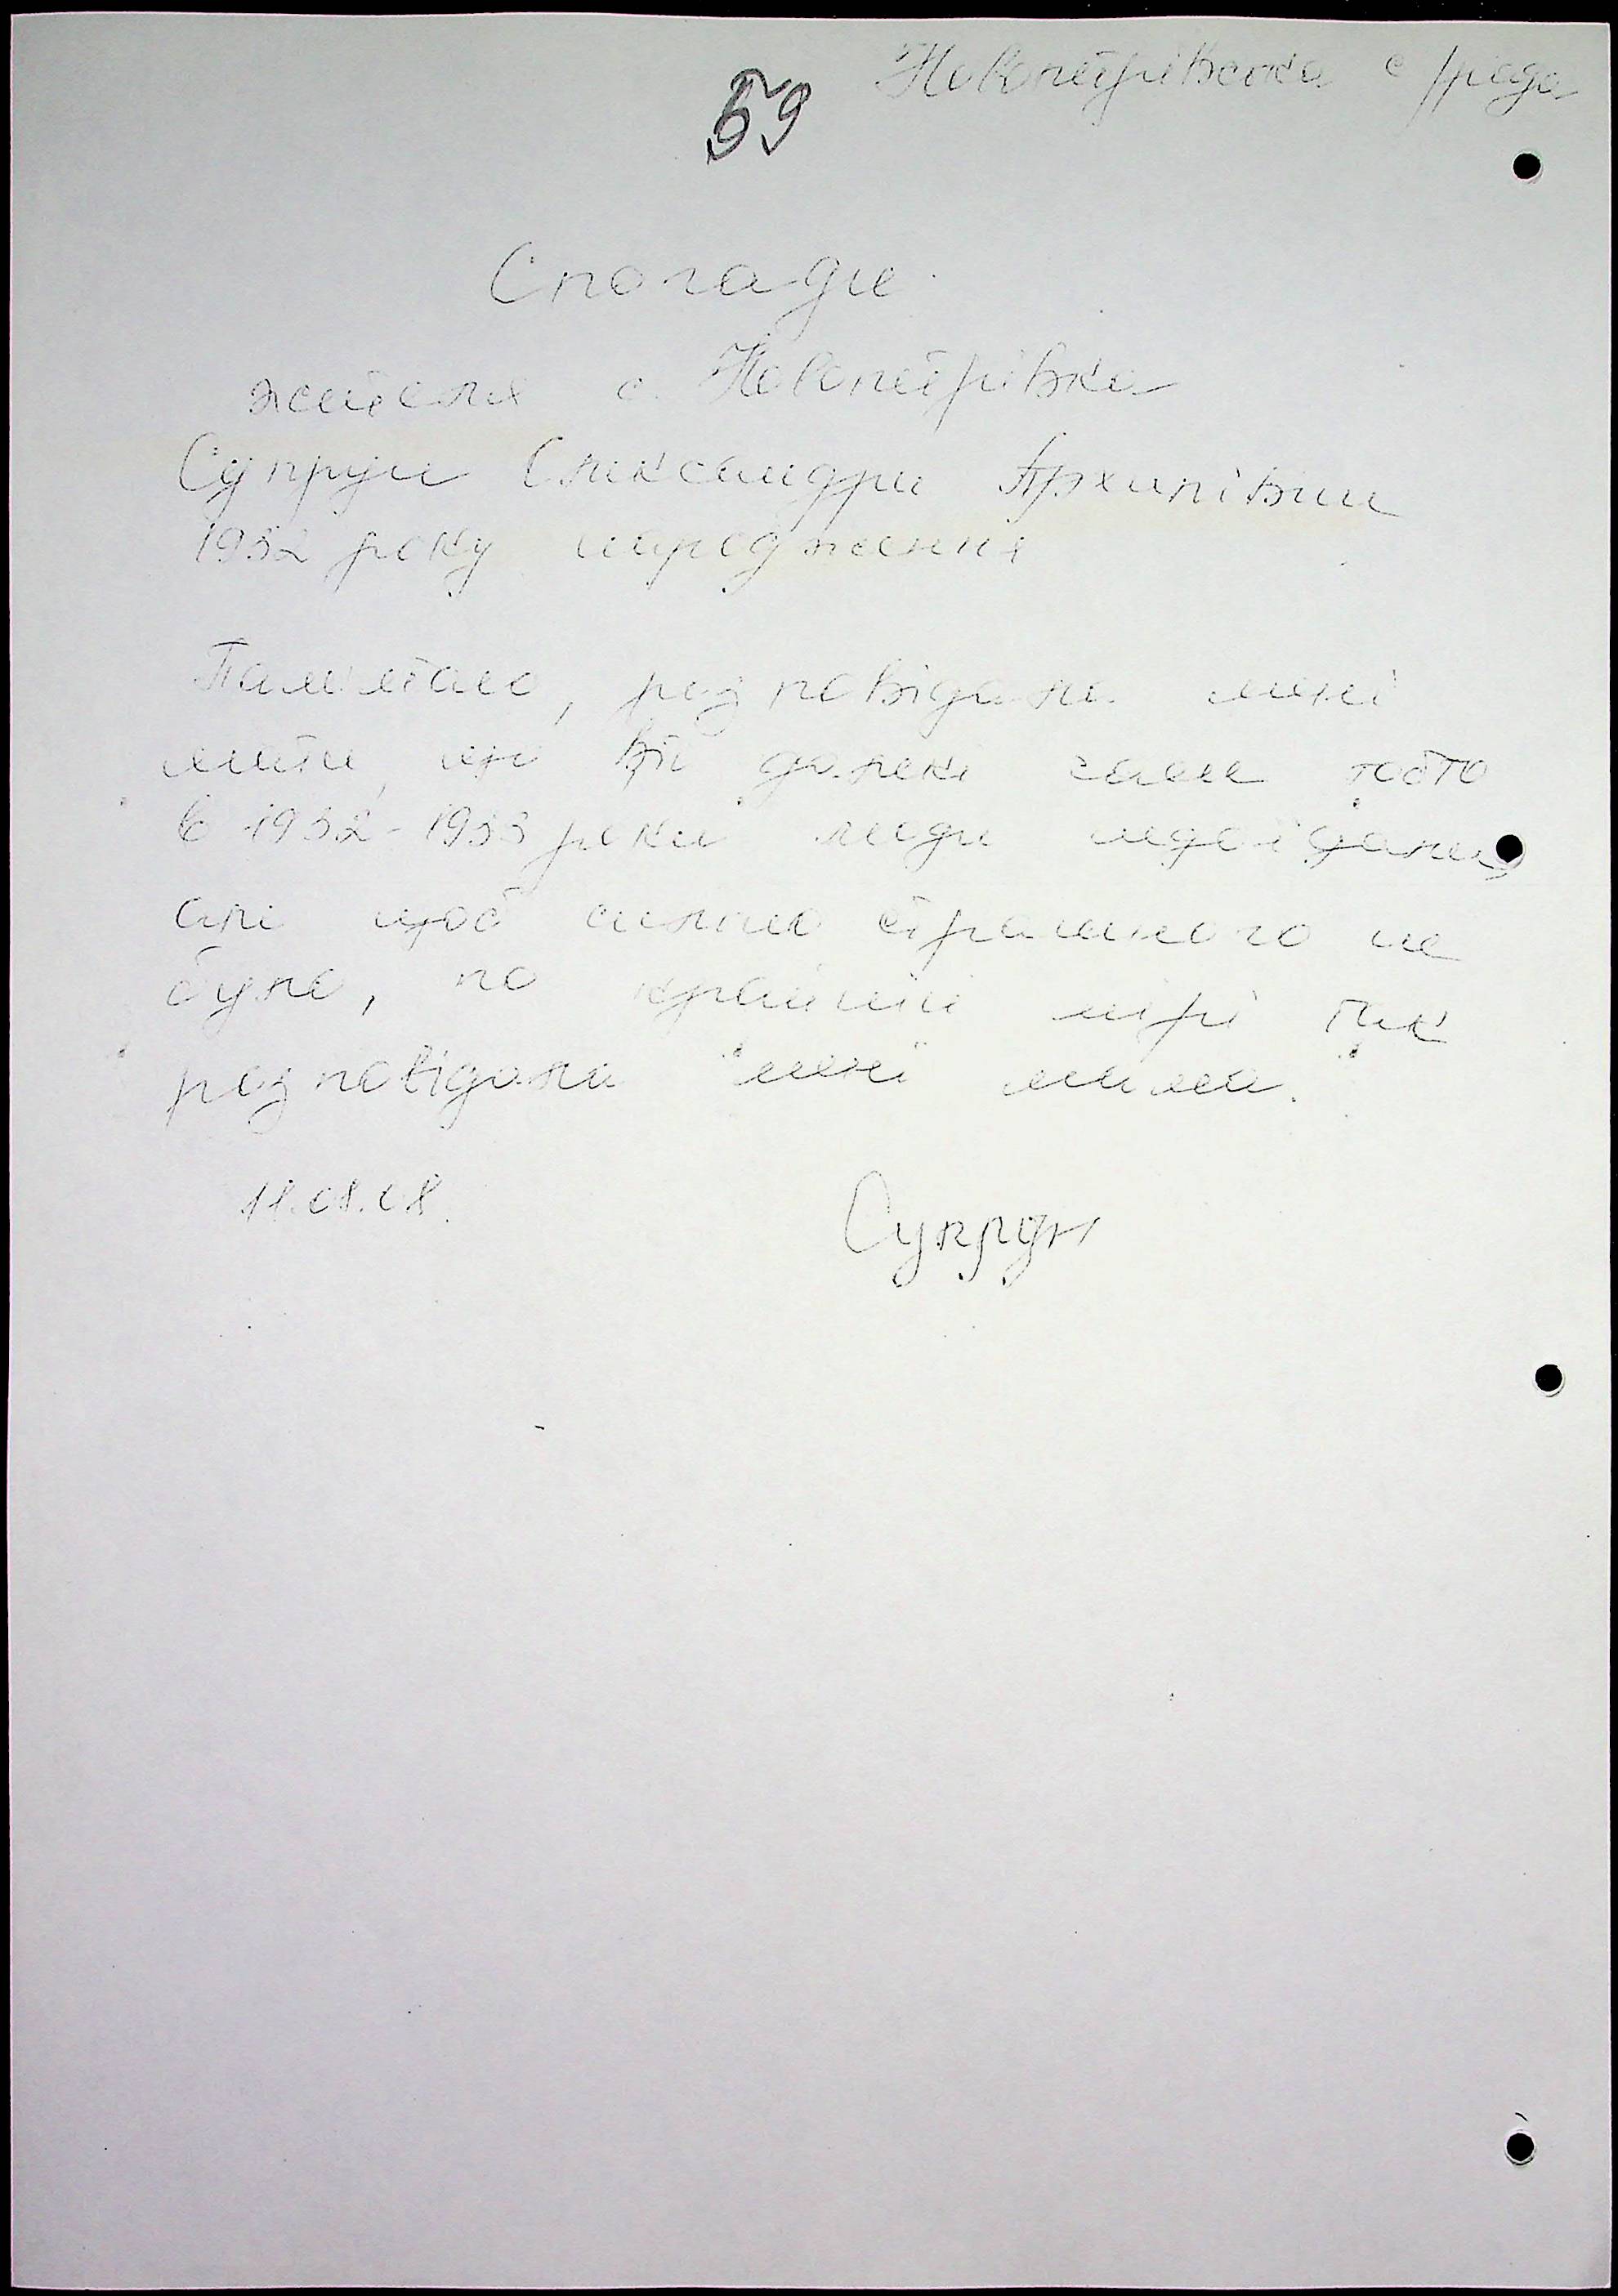 Новопетрівська с/рада
59
Спогади
жителя с. Новопетрівка
Супрун Олександри Архипівни
1932 року народження
Пам'ятаю, розповідала мені
мати, що в ті далекі часи тобто
в 1932-1933 роки люди недоїдали,
але щоб сильно страшного не
було, по крайній мірі так
розповідала мені мама.
11.08.08.
Супрун